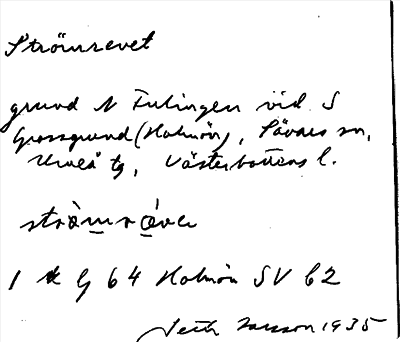 Strömrevet
grund N Fulingen vid S
Grossgrund (Holmön), Sävars sn,
Umeå tg, Västerbottens l.
strömrǝvǝ
1 k G 64 Holmön SV C2
Seth Larsson 1935